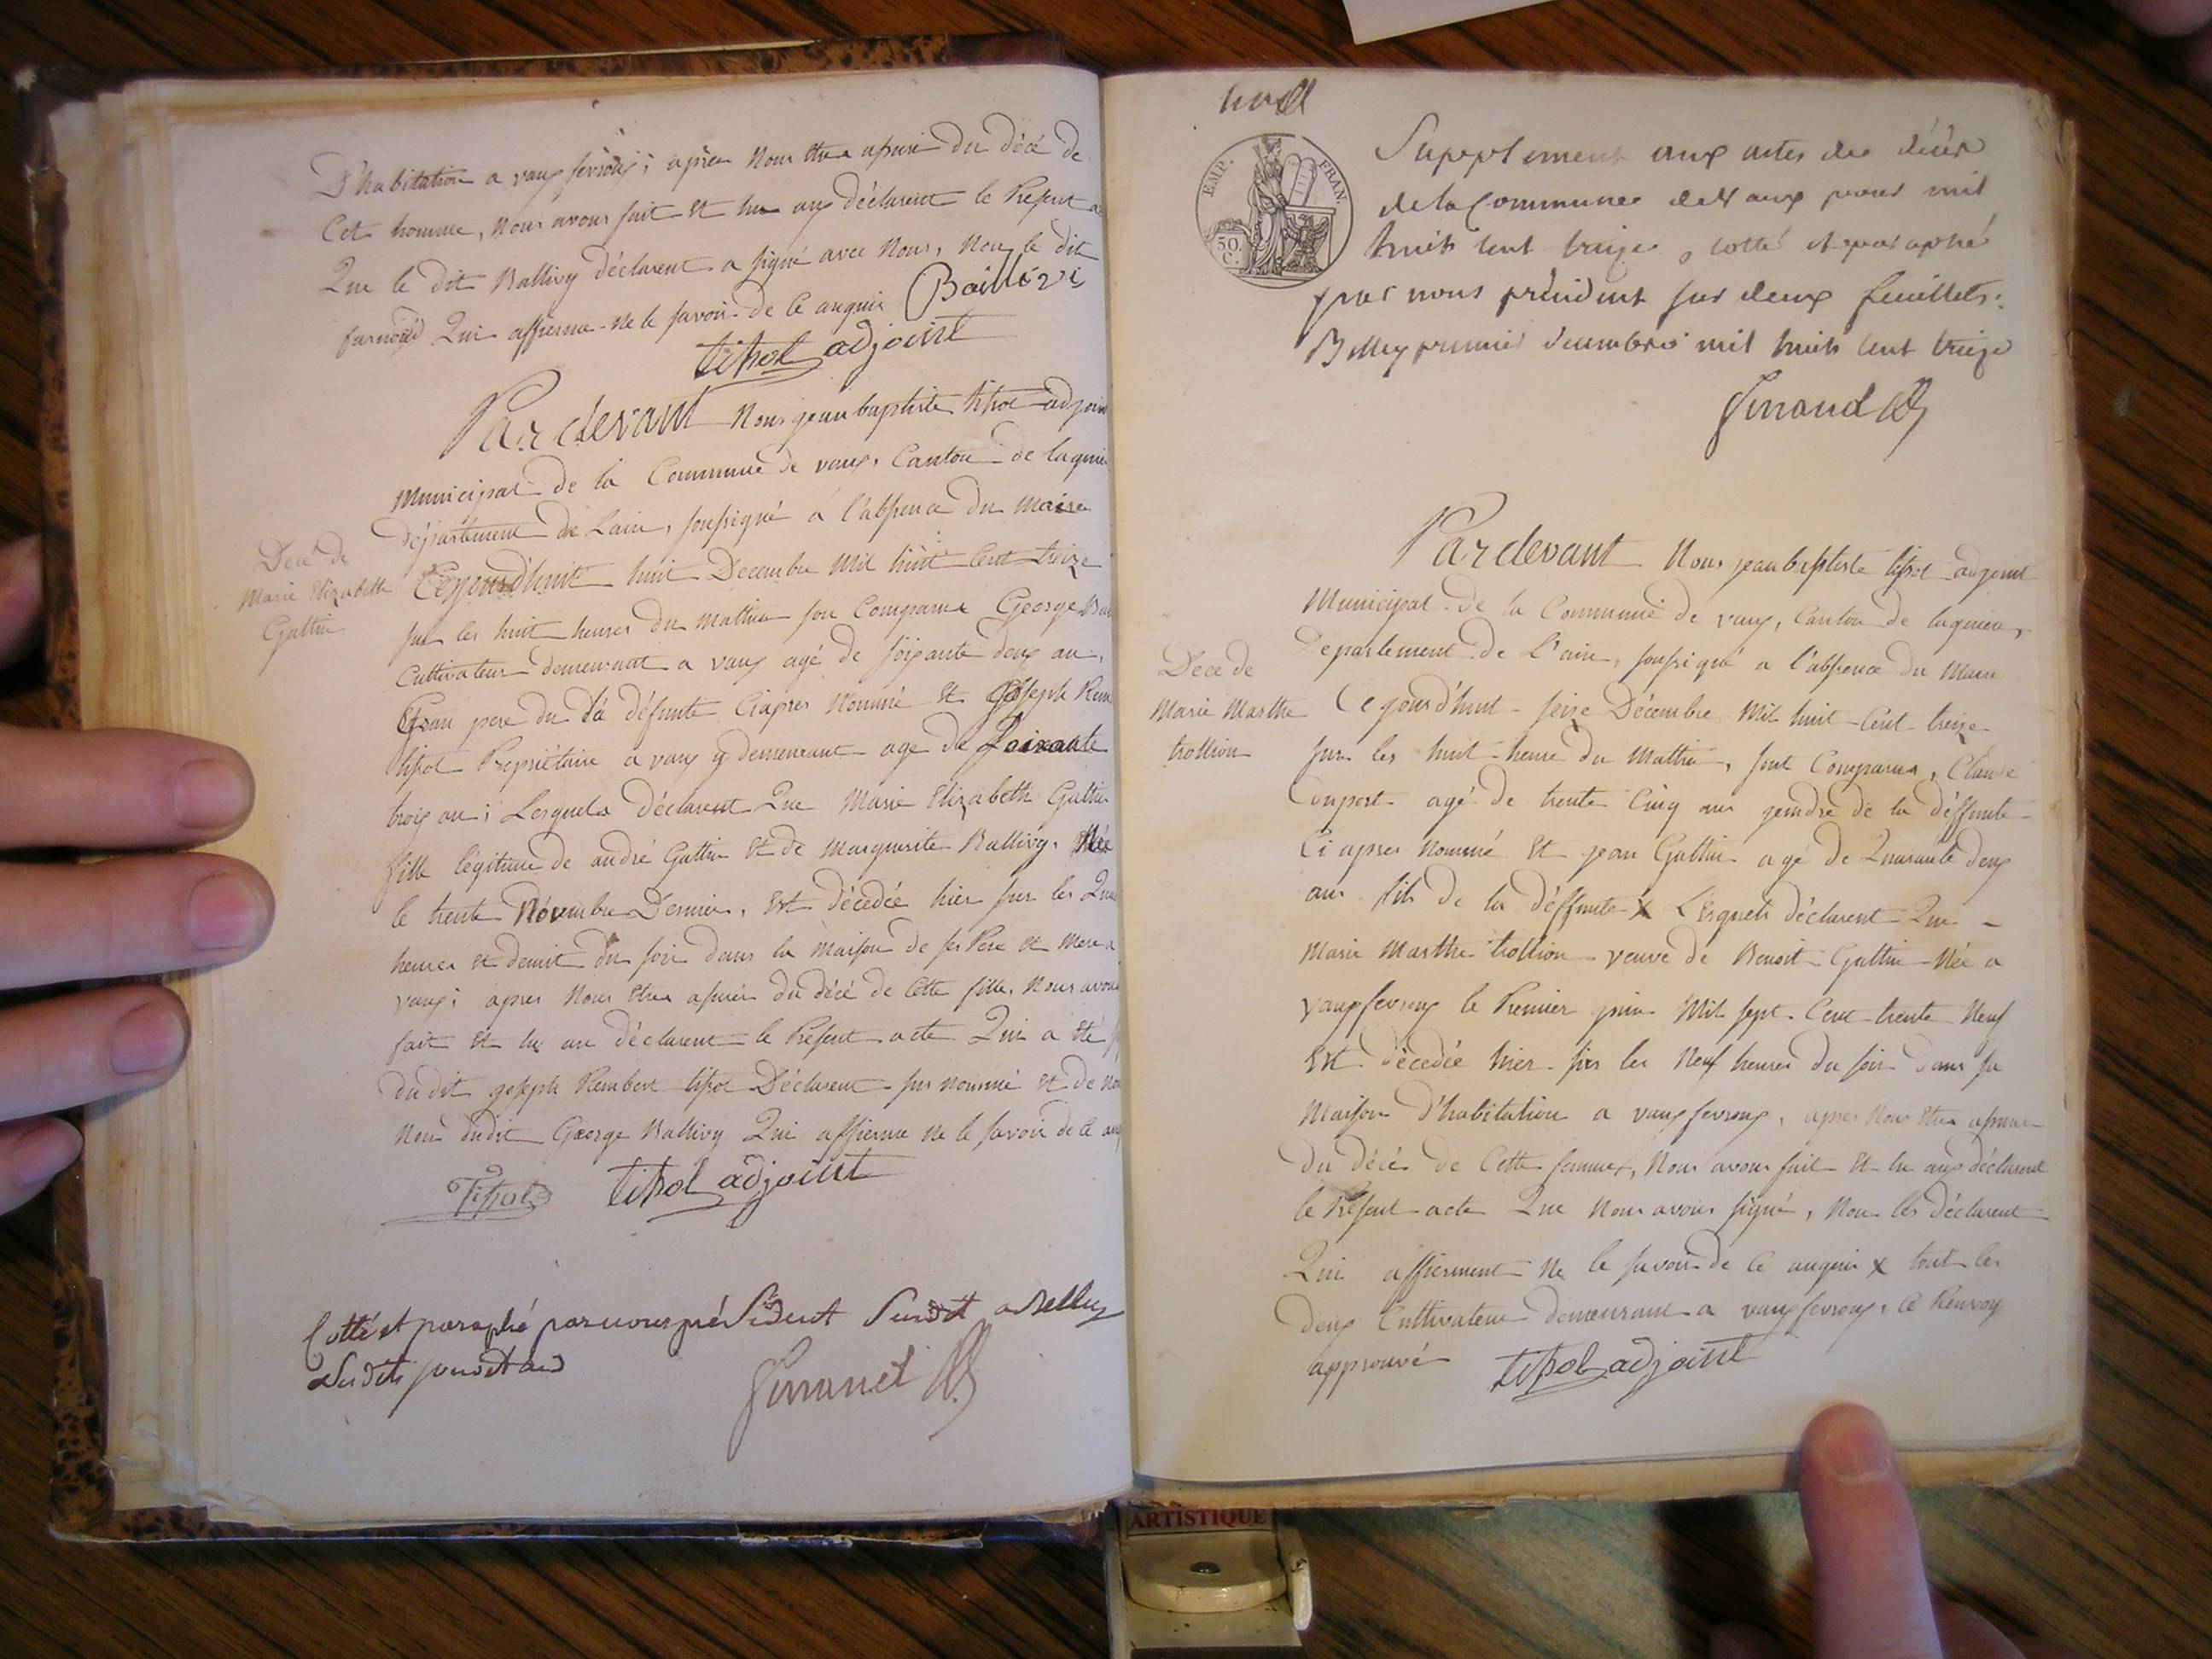 D'habitation a vaux fevroux ; après Nous être assuré du décé de
Cet homme, Nous avons fait et lu aux déclarent le Présent
Que le dit Ballivy déclarent a signé avec Nous, Non le dit
Qui affierme ne le savoir de ce enquis Baillivi
tihol adjoint
Par devant Nous jean baptiste tihol adjoin
Municipal de la Commune de vaux, Canton de lagnie
département de Lain, soussigné a l'abssence du Maire
Decé de
Marie Elizabeth
Guttin
Cejourd'huit huit Decembre Mil huit Cent treize
sur les huit heures du Mattin son Comparus George Bal
Cultivateur demeurant a vaux agé de soixante deux an,
pere du la défunte Ciapres Nommé et Joseph Ram
tihol Propriétaire a vaux y demeurant age de Soixante
trois an ; Lesquels déclarent Que Marie Elizabeth Guttin
fille légitime de andré Guttin et de Marguerite Ballivy, Née
le trente Novembre Dernier, est décedée hier sur les Qua
heures et demit du soir dans la Maison de ses Pere et Mere a
vaux ; apres Nous être assurés du décé de Cette fille, Nous avons
fait et lu au déclarent le Présent acte Qui a été
du dit joseph Rambert tihol Déclarent sus nommé et de no
Non dudit George Ballivy Qui affierme ne le savoir de ce
Tihol tihol adjoint
Cotté et paraphé par nous président
Suplement aux actes de décès
de la Commune de Vaux pour mil
huit cent treize, cotté et paraphé
par nous président sur deux feuillets.
Belley premier décembre mil huit cent treize
EMP. FRAN.
50.
C.
Par devant Nous jean baptiste tihol adjoint
Municipal de la Commune de vaux, Canton de lagnieu,
Departement de L'ain, soussigné a l'abssence du Maire
Decé de
Marie Marthe
trollion
Cejourd'huit seize Décembre Mil huit Cent treize
sur les huit heure du Mattin, sont Comparus, Claude
Conport agé de trente Cinq ans gendre de la déffunte
Ci apres Nommé et jean Guttin agé de Quarante deux
ans fils de la déffunte X Lesquels déclarent Que -
Marie Marthe trollion veuve de Benoit Guttin Née a
vaux fevroux le Premier juin Mil sept Cent trente Neuf
Est décedée hier sur les Neuf heures du soir dans sa
Maison d'habitation a vaux fevroux, apres Nous être assuré
du décé de Cette femme, Nous avons fait et lu aux déclarent
le Présent acte Que Nous avons signé, Non les déclarent
Qui affierment Ne le savoir de ce enquis X tout les
deux Cultivateur demeurant a vaux fevroux, ce Renvoy
approuvé tihol adjoint
ARTISTIQUE